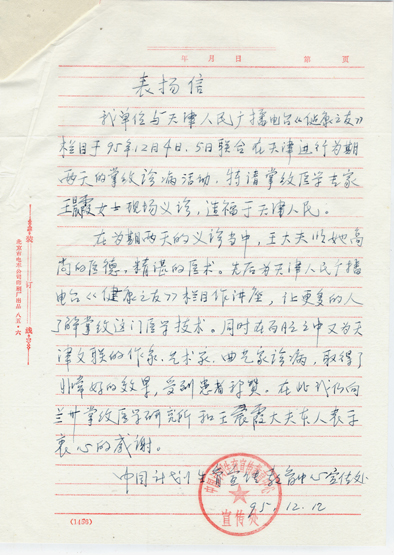 年 月 日 第 页
表扬信
我单位与天津人民广播电台《健康之友》
栏目于95年12月4日、5日联合在天津进行为期
两天的掌纹诊病活动。特请掌纹医学专家
王晨霞女士现场义诊，造福于天津人民。
在为期两天的义诊当中，王大夫以她高
尚的医德，精湛的医术。先后为天津人民广播
电台《健康之友》栏目作讲座，让更多的人
了解掌纹这门医学技术。同时在百忙之中又为天
津文联的作家、艺术家、曲艺家诊病，取得了
非常好的效果，受到患者称赞。在此我们向
兰州掌纹医学研究所和王晨霞大夫本人表示
衷心的感谢。
中国计划生育宣传教育中心宣传处
宣传处
95.12.12
(1459)
装订线
北京市电车公司印刷厂出品 八五·六